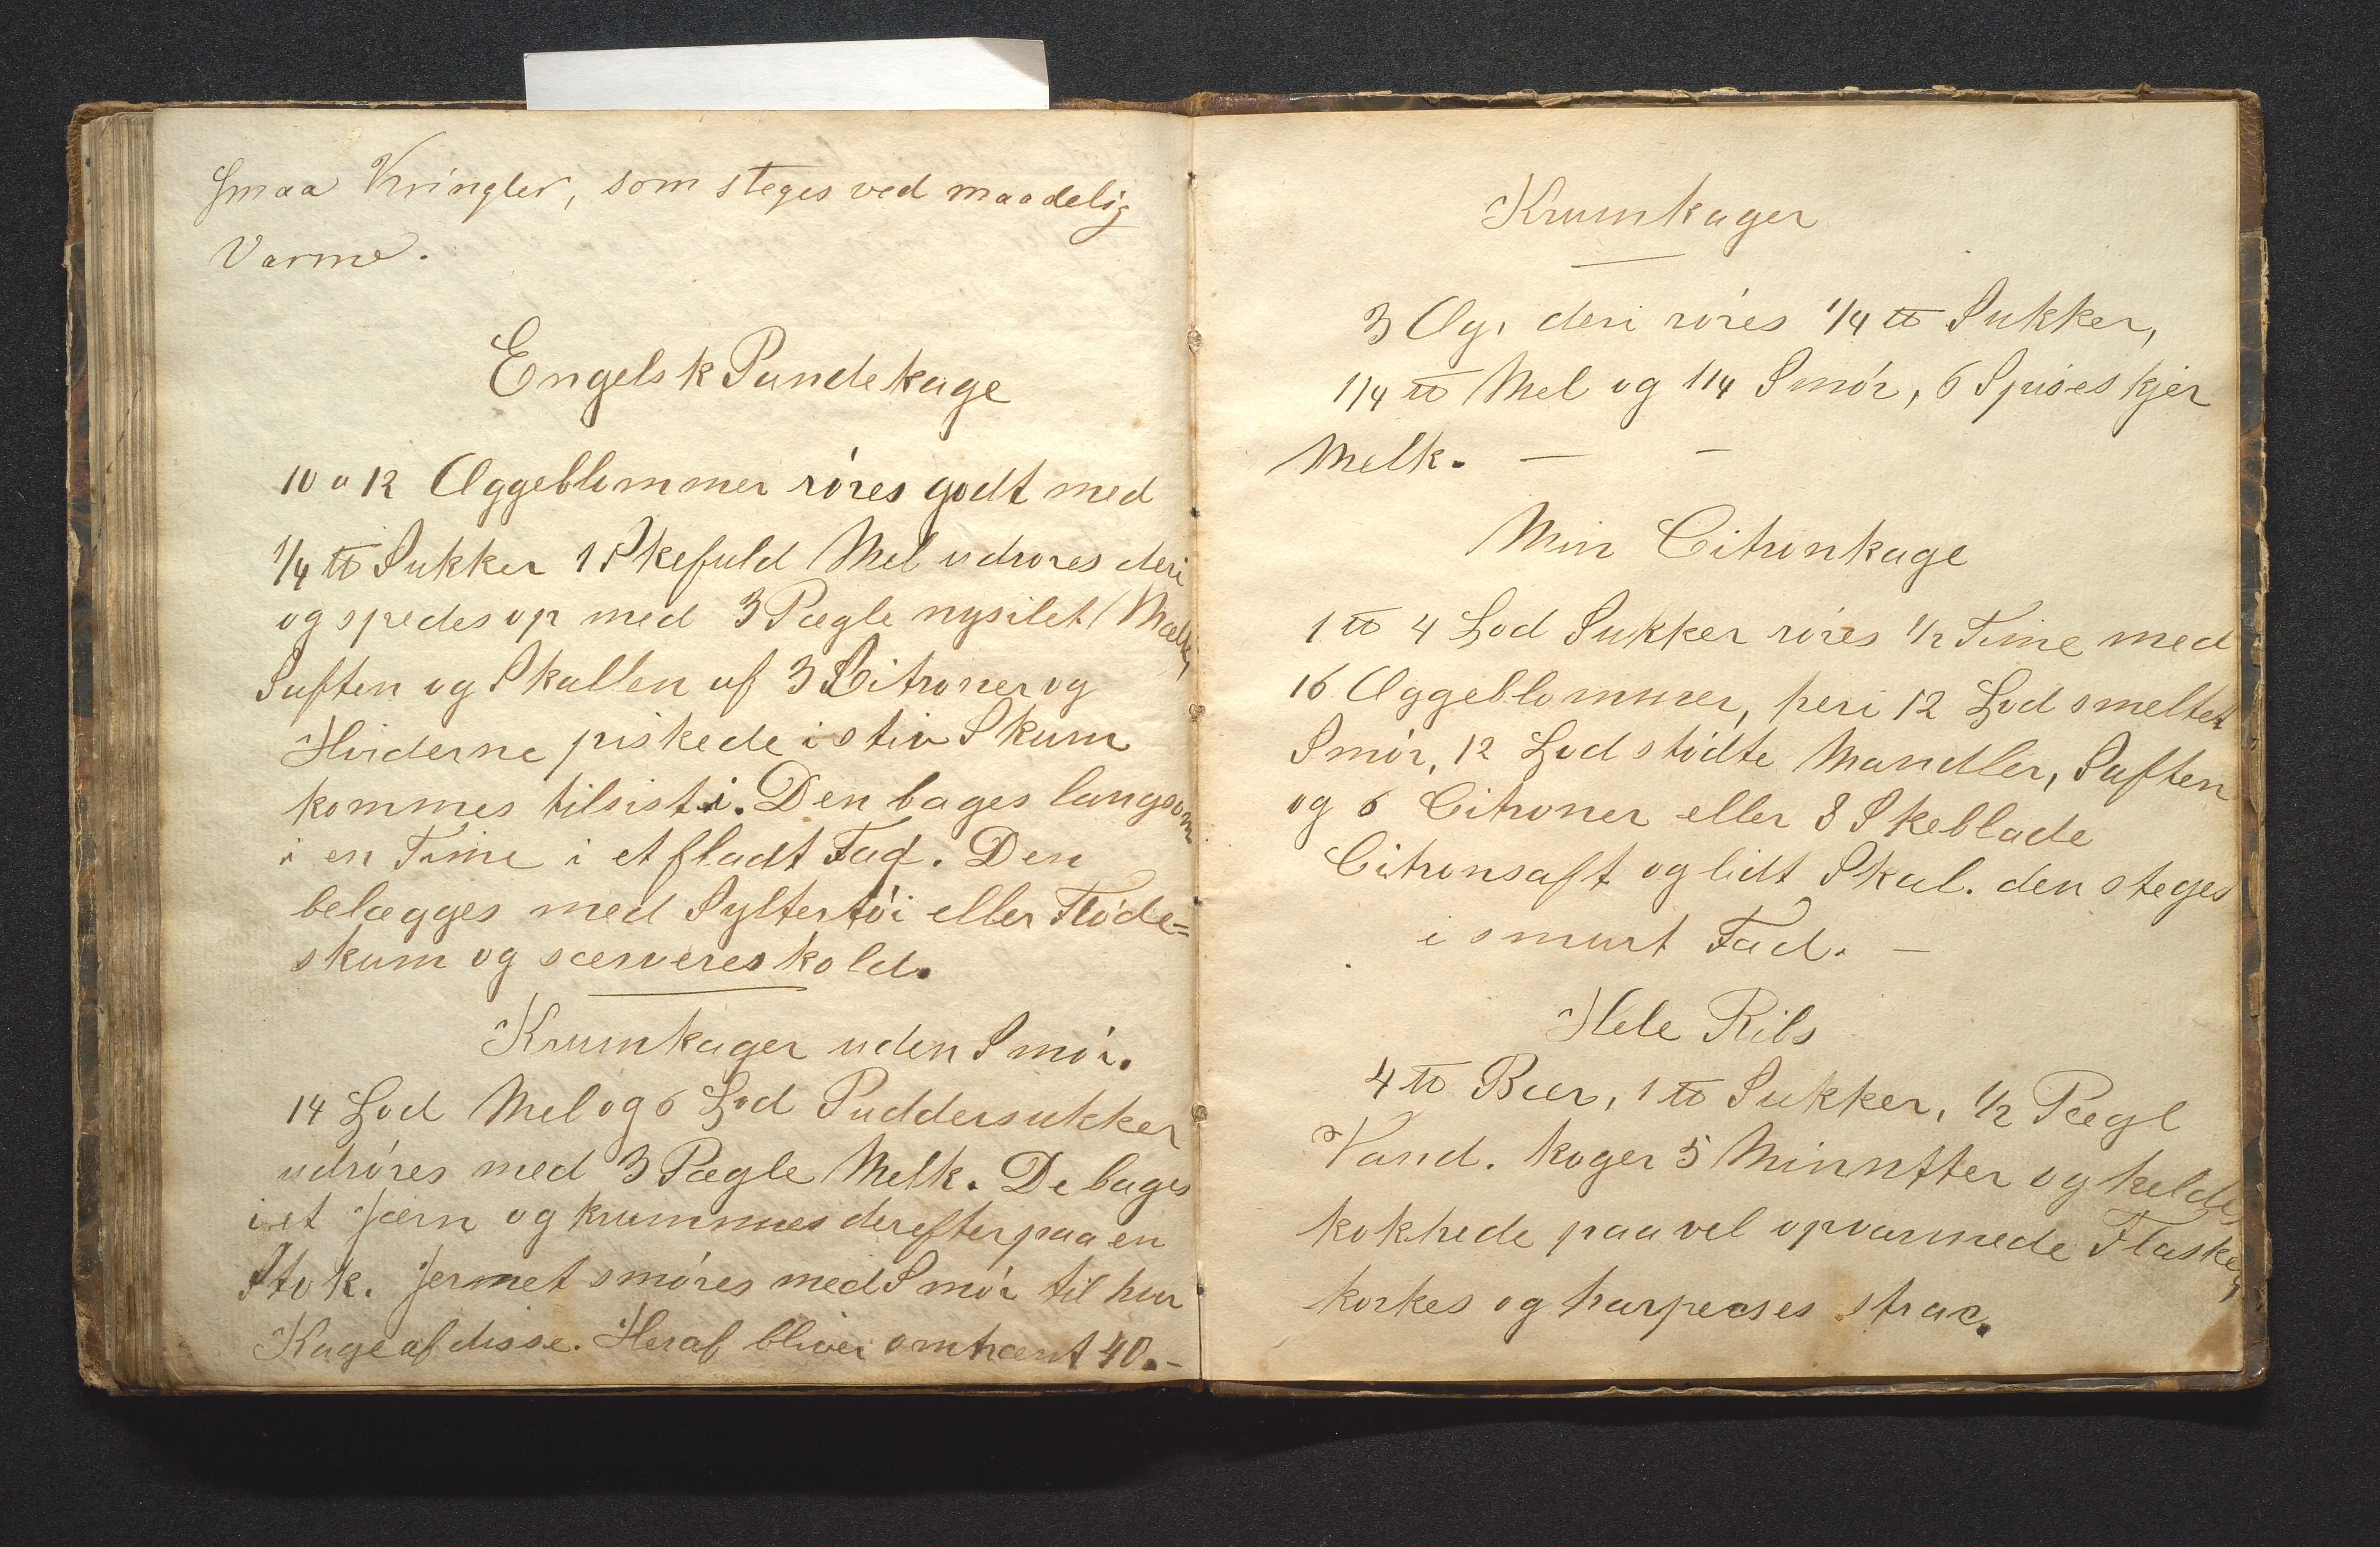 Smaa Kringler, som steges ved maadelig
Varme.
Engelsk Pandekage
10 a 12 Æggeblommer röres godt med
1/4 ℔ Sukker 1 Skefuld Mel udröres deri
og spedes op med 3 Pægle nysilet Mælk,
Saften og Skallen af 3 Citroner og
Hviderne piskede i stiv Skum
kommes tilsist i. Den bages langsom
i en Time i et fladt Fad. Den
belægges med Syltertöi eller Flöde=
skum og særveres kold.
Krumkager uden Smör.
14 Lod Mel og 6 Lod Puddersukker
udröres med 3 Pægle Melk. De bages
i et Jærn og krummes derefter paa en
Stok. Jernet smöres med Smör til hver
Kage af disse. Heraf bliver omtrent 40.-
Krumkager
3 Æg, deri röres 1/4 ℔ Sukker,
1/4 ℔ Mel og 1/4 Smör, 6 Spiseskjer
Melk. — —
Min Citronkage
1 ℔ 4 Lod Sukker röres 1/2 Time med
16 Æggeblommer, heri 12 Lod smeltet
Smör, 12 Lod stödte Mandler, Saften
og 6 Citroner eller 8 Skeblade
Citronsaft og lidt Skal. den steges
i smurt Fad. —
Hele Ribs
4 ℔ Bær, 1 ℔ Sukker, 1/2 Pægl
Vand. koger 5 Minutter og heldes
kokhede paa vel opvarmede Flasker,
korkes og harpecses strax.